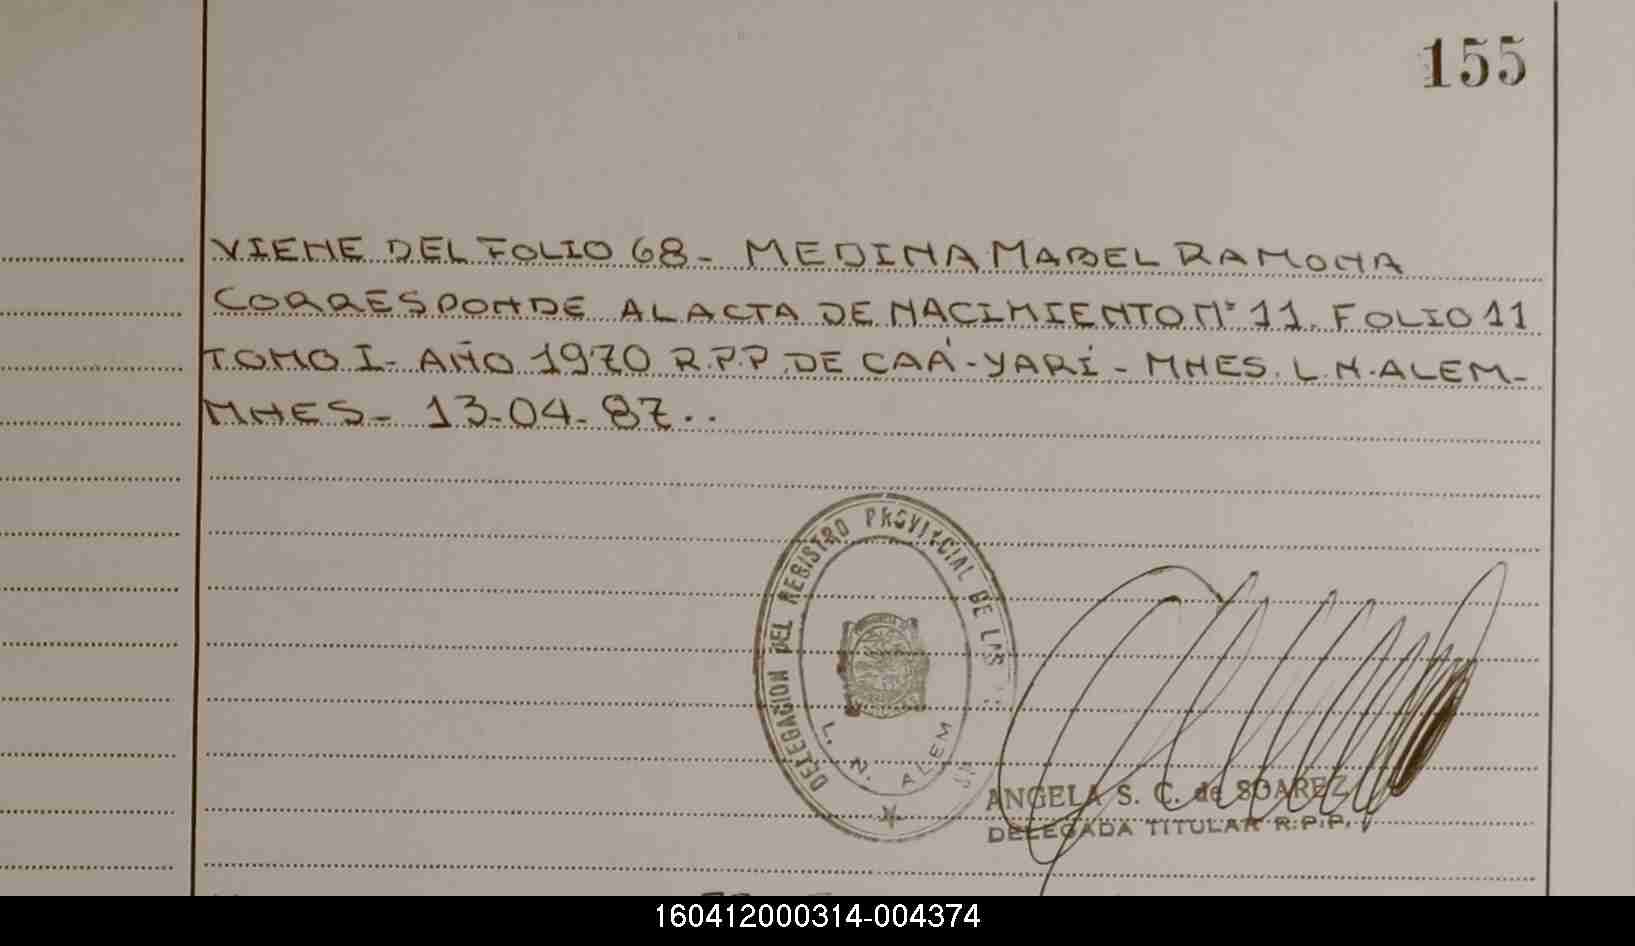 155
VIENE DEL FOLIO 68- MEDINA MABEL RAMONA
CORRESPONDE AL ACTA DE NACIMIENTO N° 11. FOLIO 11
TOMO I- AÑO 1970 R.P.P. DE CAÁ-YARÍ- MNES. L.N.ALEM-
MNES- 13-04-87..
DELEGACION DEL REGISTRO PROVINCIAL DE LAS
L. N. ALEM
ANGELA S. C. de SOAREZ
DELEGADA TITULAR R.P.P.
160412000314-004374